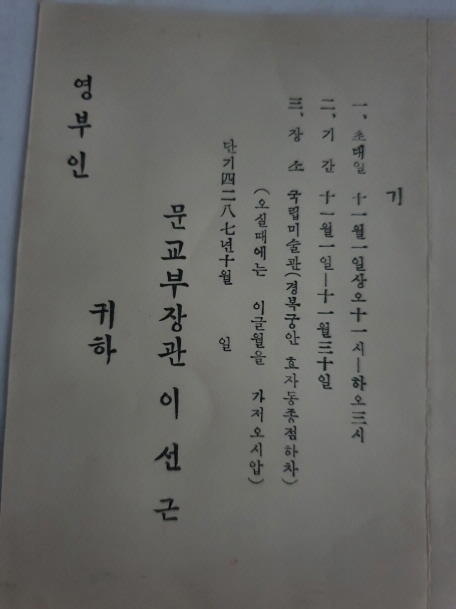 기
一、초대일 十一월一일상오十一시—하오三시
二、기간 十一월一일—十一월三十일
三、장소 국립미술관(경복궁안 효자동종점하차)
(오실때에는 이글월을 가저오시압)
단기四二八七년十월 일
문교부장관 이선근
영부인 귀하